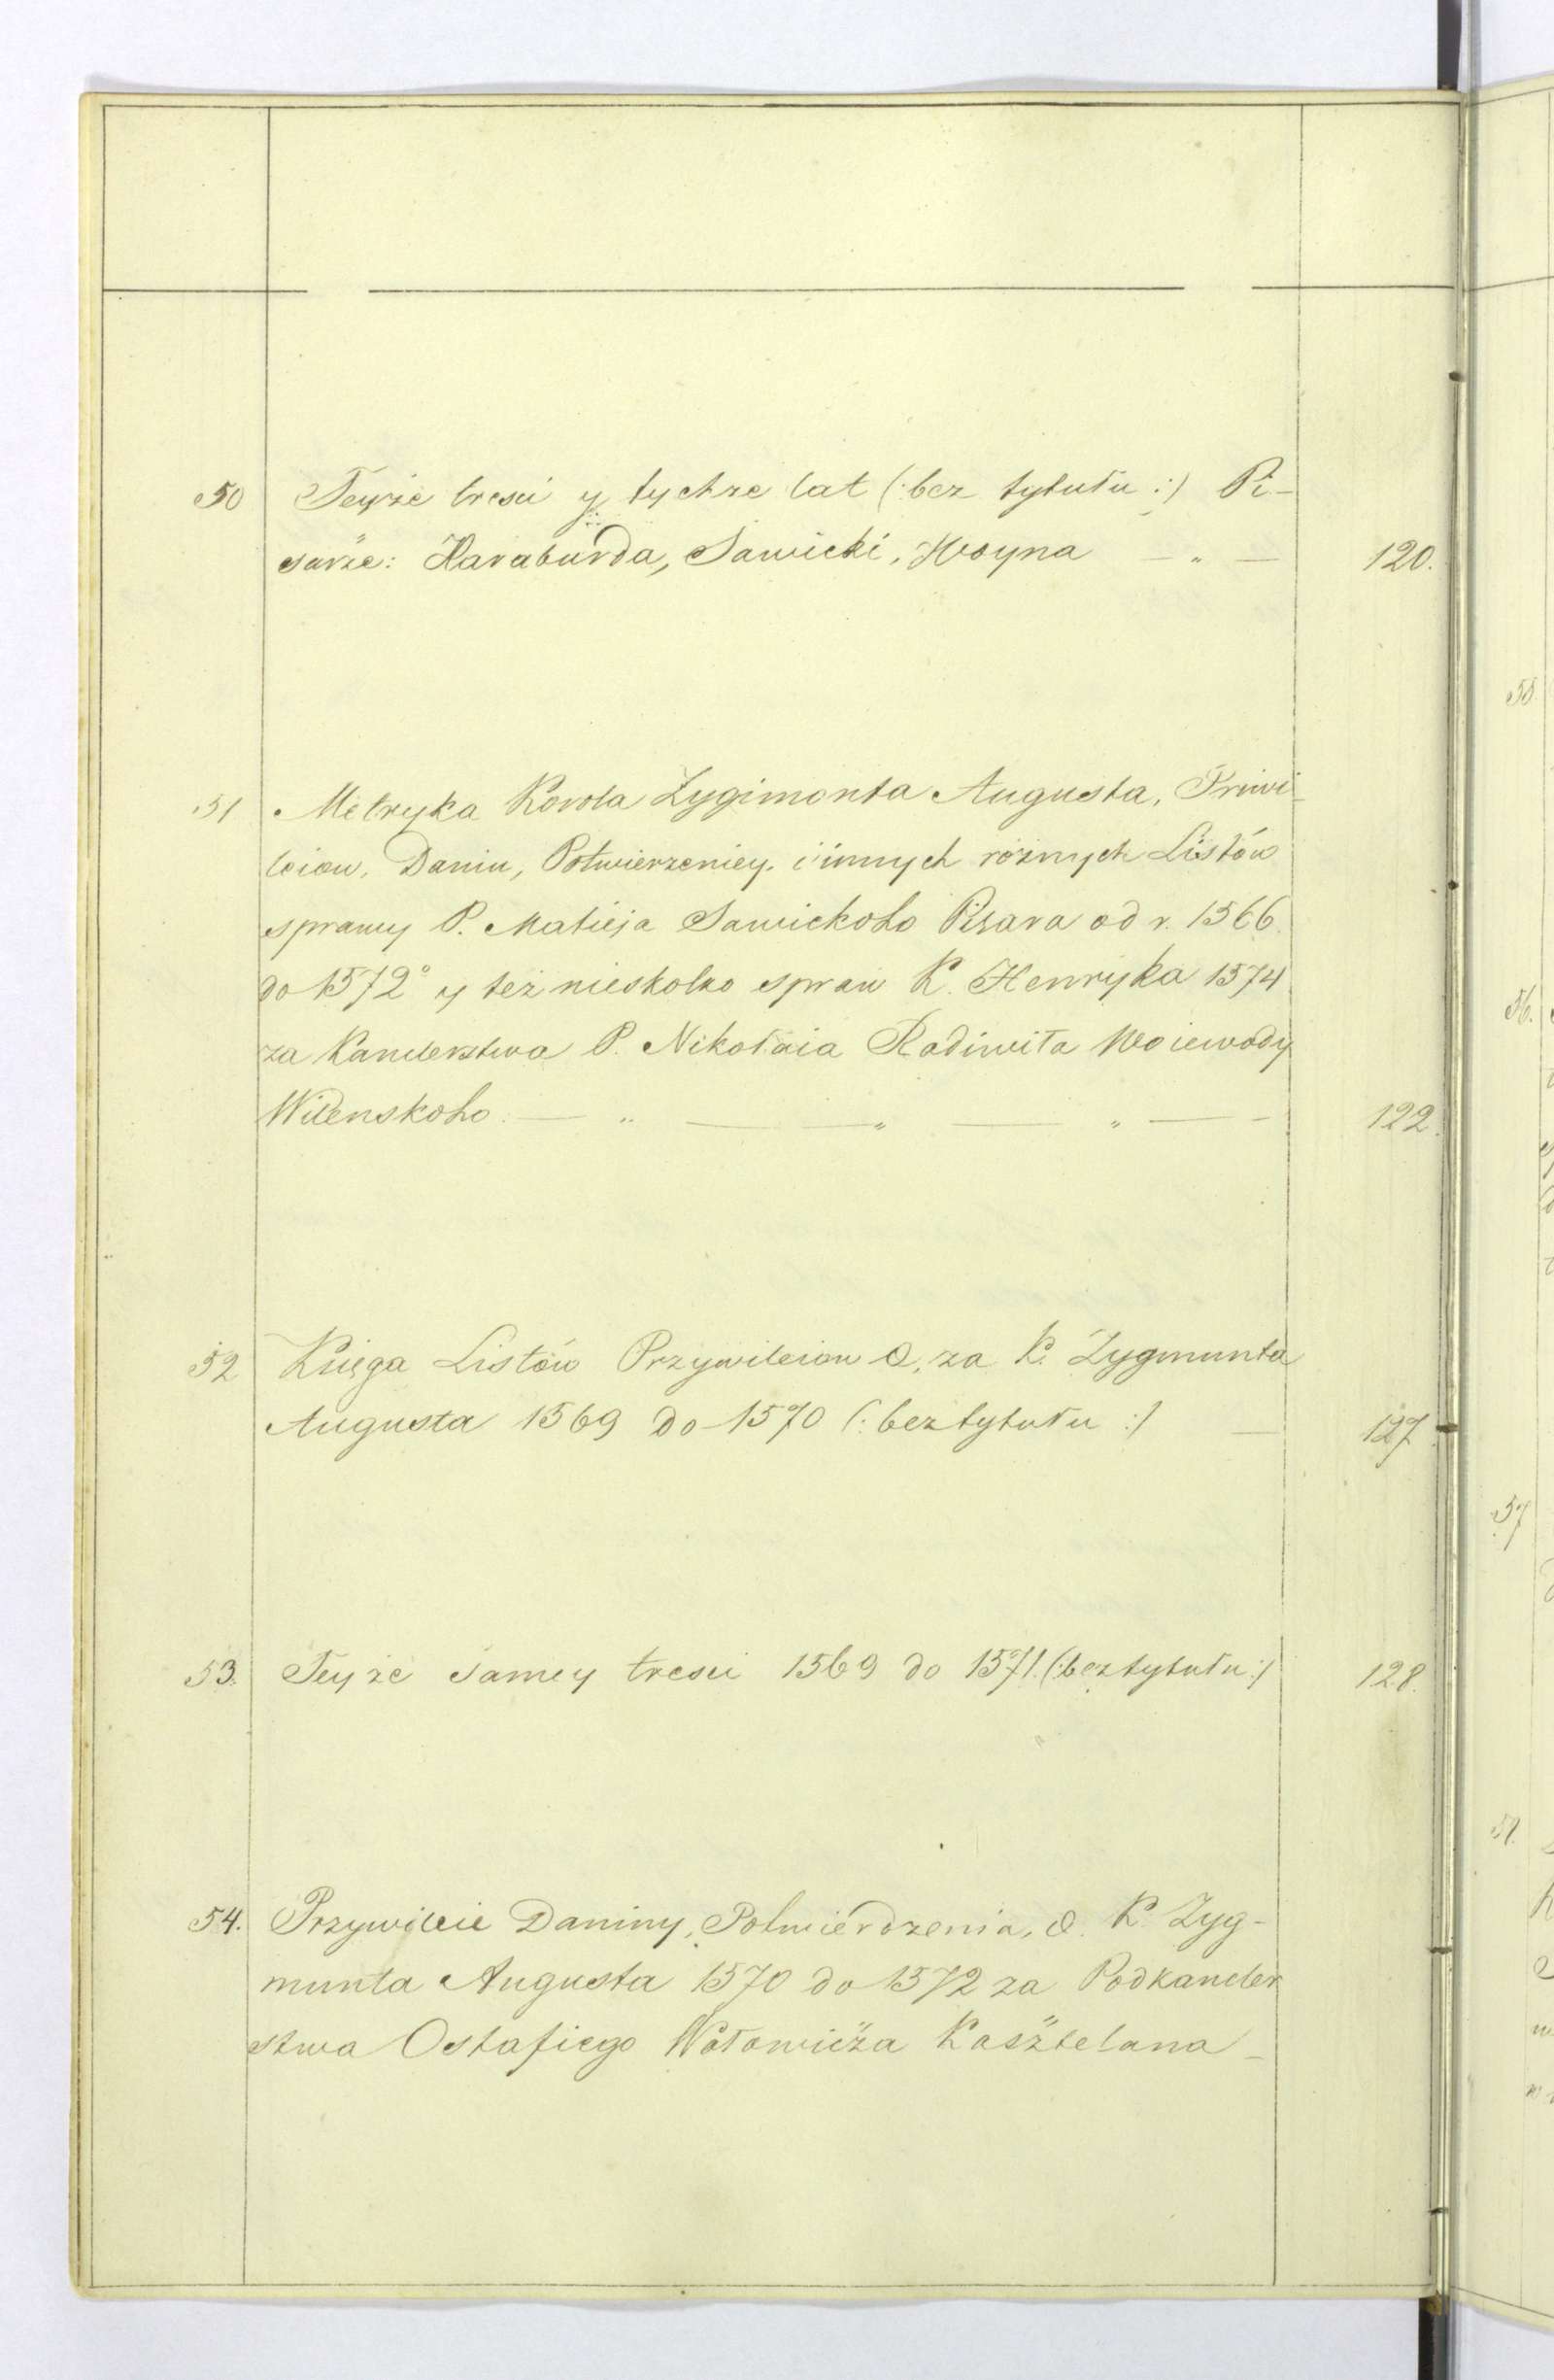 50 Teyże tresci y tychze lat (: bez tytułu :) Pi-
sarze: Haraburda, Sawicki, Woyna — „ — 120.
51 Metryka Korola Zygimonta Augusta, Priwi-
leiow, Danin, Potwierzeniey. i innych różnych Listów
sprawy P. Matieja Sawickoho Pisara od r. 1566.
do 1572° y też nieskolko spraw K. Henryka 1574
za Kanclerstwa P. Nikołaia Radiwiła Woiewody
Wilenskoho. — „ — — „ — „ — - 122.
52 Księga Listów Przywileiow &. za K. Zygmunta
Augusta 1569 do 1570 (: bez tytułu :) — 127
53. Teyże samey tresci 1569 do 1571. (: bez tytułu :) 128.
54. Przywileie Daniny, Potwierdzenia, &. K. Zyg-
munta Augusta 1570 do 1572 za Podkancler
stwa Ostafiego Wołowicza Kasztelana -
55.
56.
57
58.